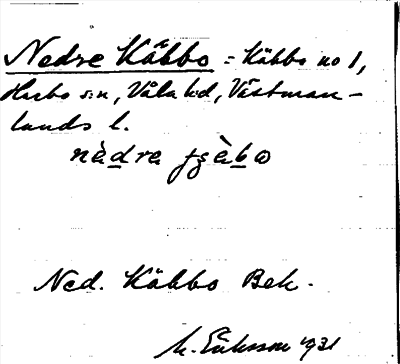 Nedre Käbbo = Käbbo no 1,
Harbo s:n, Våla hd, Västman-
lands l.
nàdra
Ned. Käbbo Bek.
M. Eriksson 1931